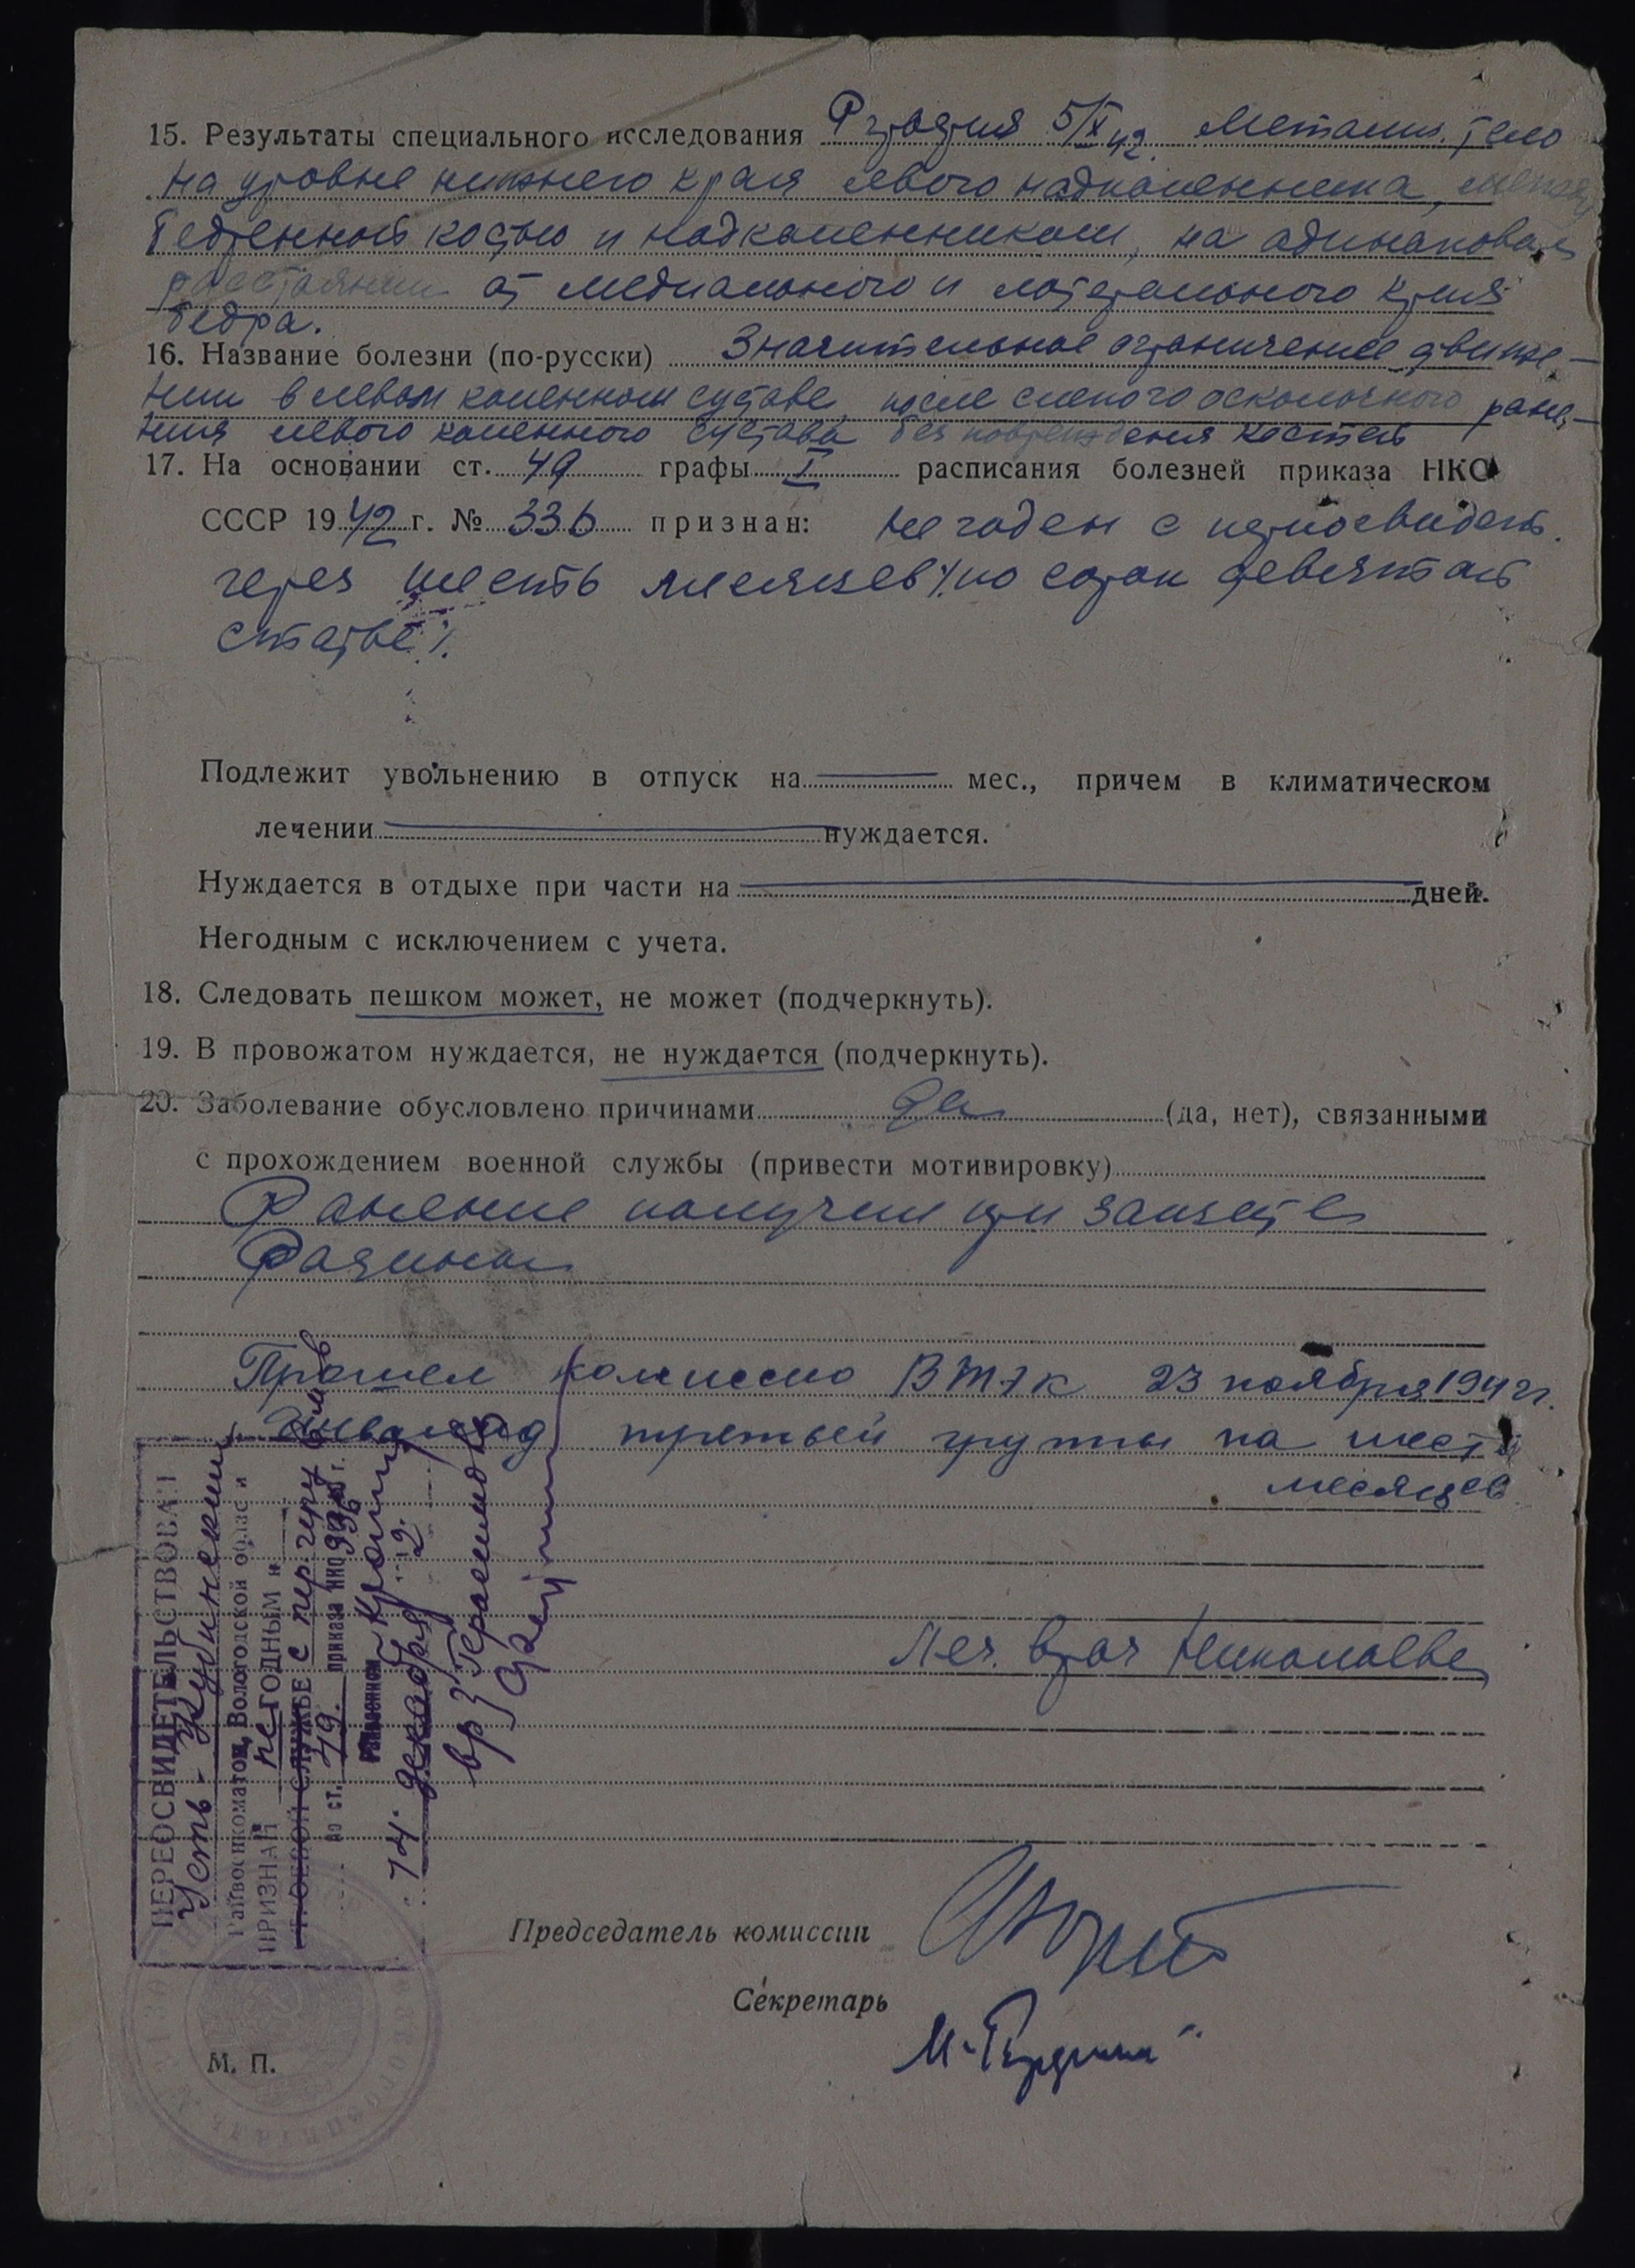 15. Результаты специального исследования Р-графия 5/X 42. Металич. тело
на уровне нижнего края левого надколенника, между
бедренной костью и надколенником, на одинаковом
расстоянии от медиального и латерального края
бедра.
16. Название болезни (по-русски) Значительное ограничение движе-
ний в левом коленном суставе, после слепого осколочного ране-
ния левого коленного сустава без повреждения костей
17. На основании ст. 49 графы I расписания болезней приказа НКО
СССР 1942 г. № 336 признан: не годен с переосвидет.
через шесть месяцев /по сорок девятой
статье/.
Подлежит увольнению в отпуск на мес., причем в климатическом
лечении нуждается.
Нуждается в отдыхе при части на дней.
Негодным с исключением с учета.
18. Следовать пешком может, не может (подчеркнуть).
19. В провожатом нуждается, не нуждается (подчеркнуть).
20. Заболевание обусловлено причинами да (да, нет), связанными
с прохождением военной службы (привести мотивировку)
Ранение получил при защите
Родины
Прошел комиссию ВТЭК 23 ноября 1942 г.
Инвалид третьей группы на шесть
месяцев
Леч. врач Николаева
ПЕРЕОСВИДЕТЕЛЬСТВОВАН
Усть-Кубинским
Райвоенкоматом, Вологодской области
ПРИЗНАН не ГОДНЫМ к
СТРОЕВОЙ СЛУЖБЕ с пер. через 6 м-в
по ст. 49. приказа НКО 336 г.
Райвоенком
14 декабря 2.
вр
Председатель комиссии
Секретарь
М. П.